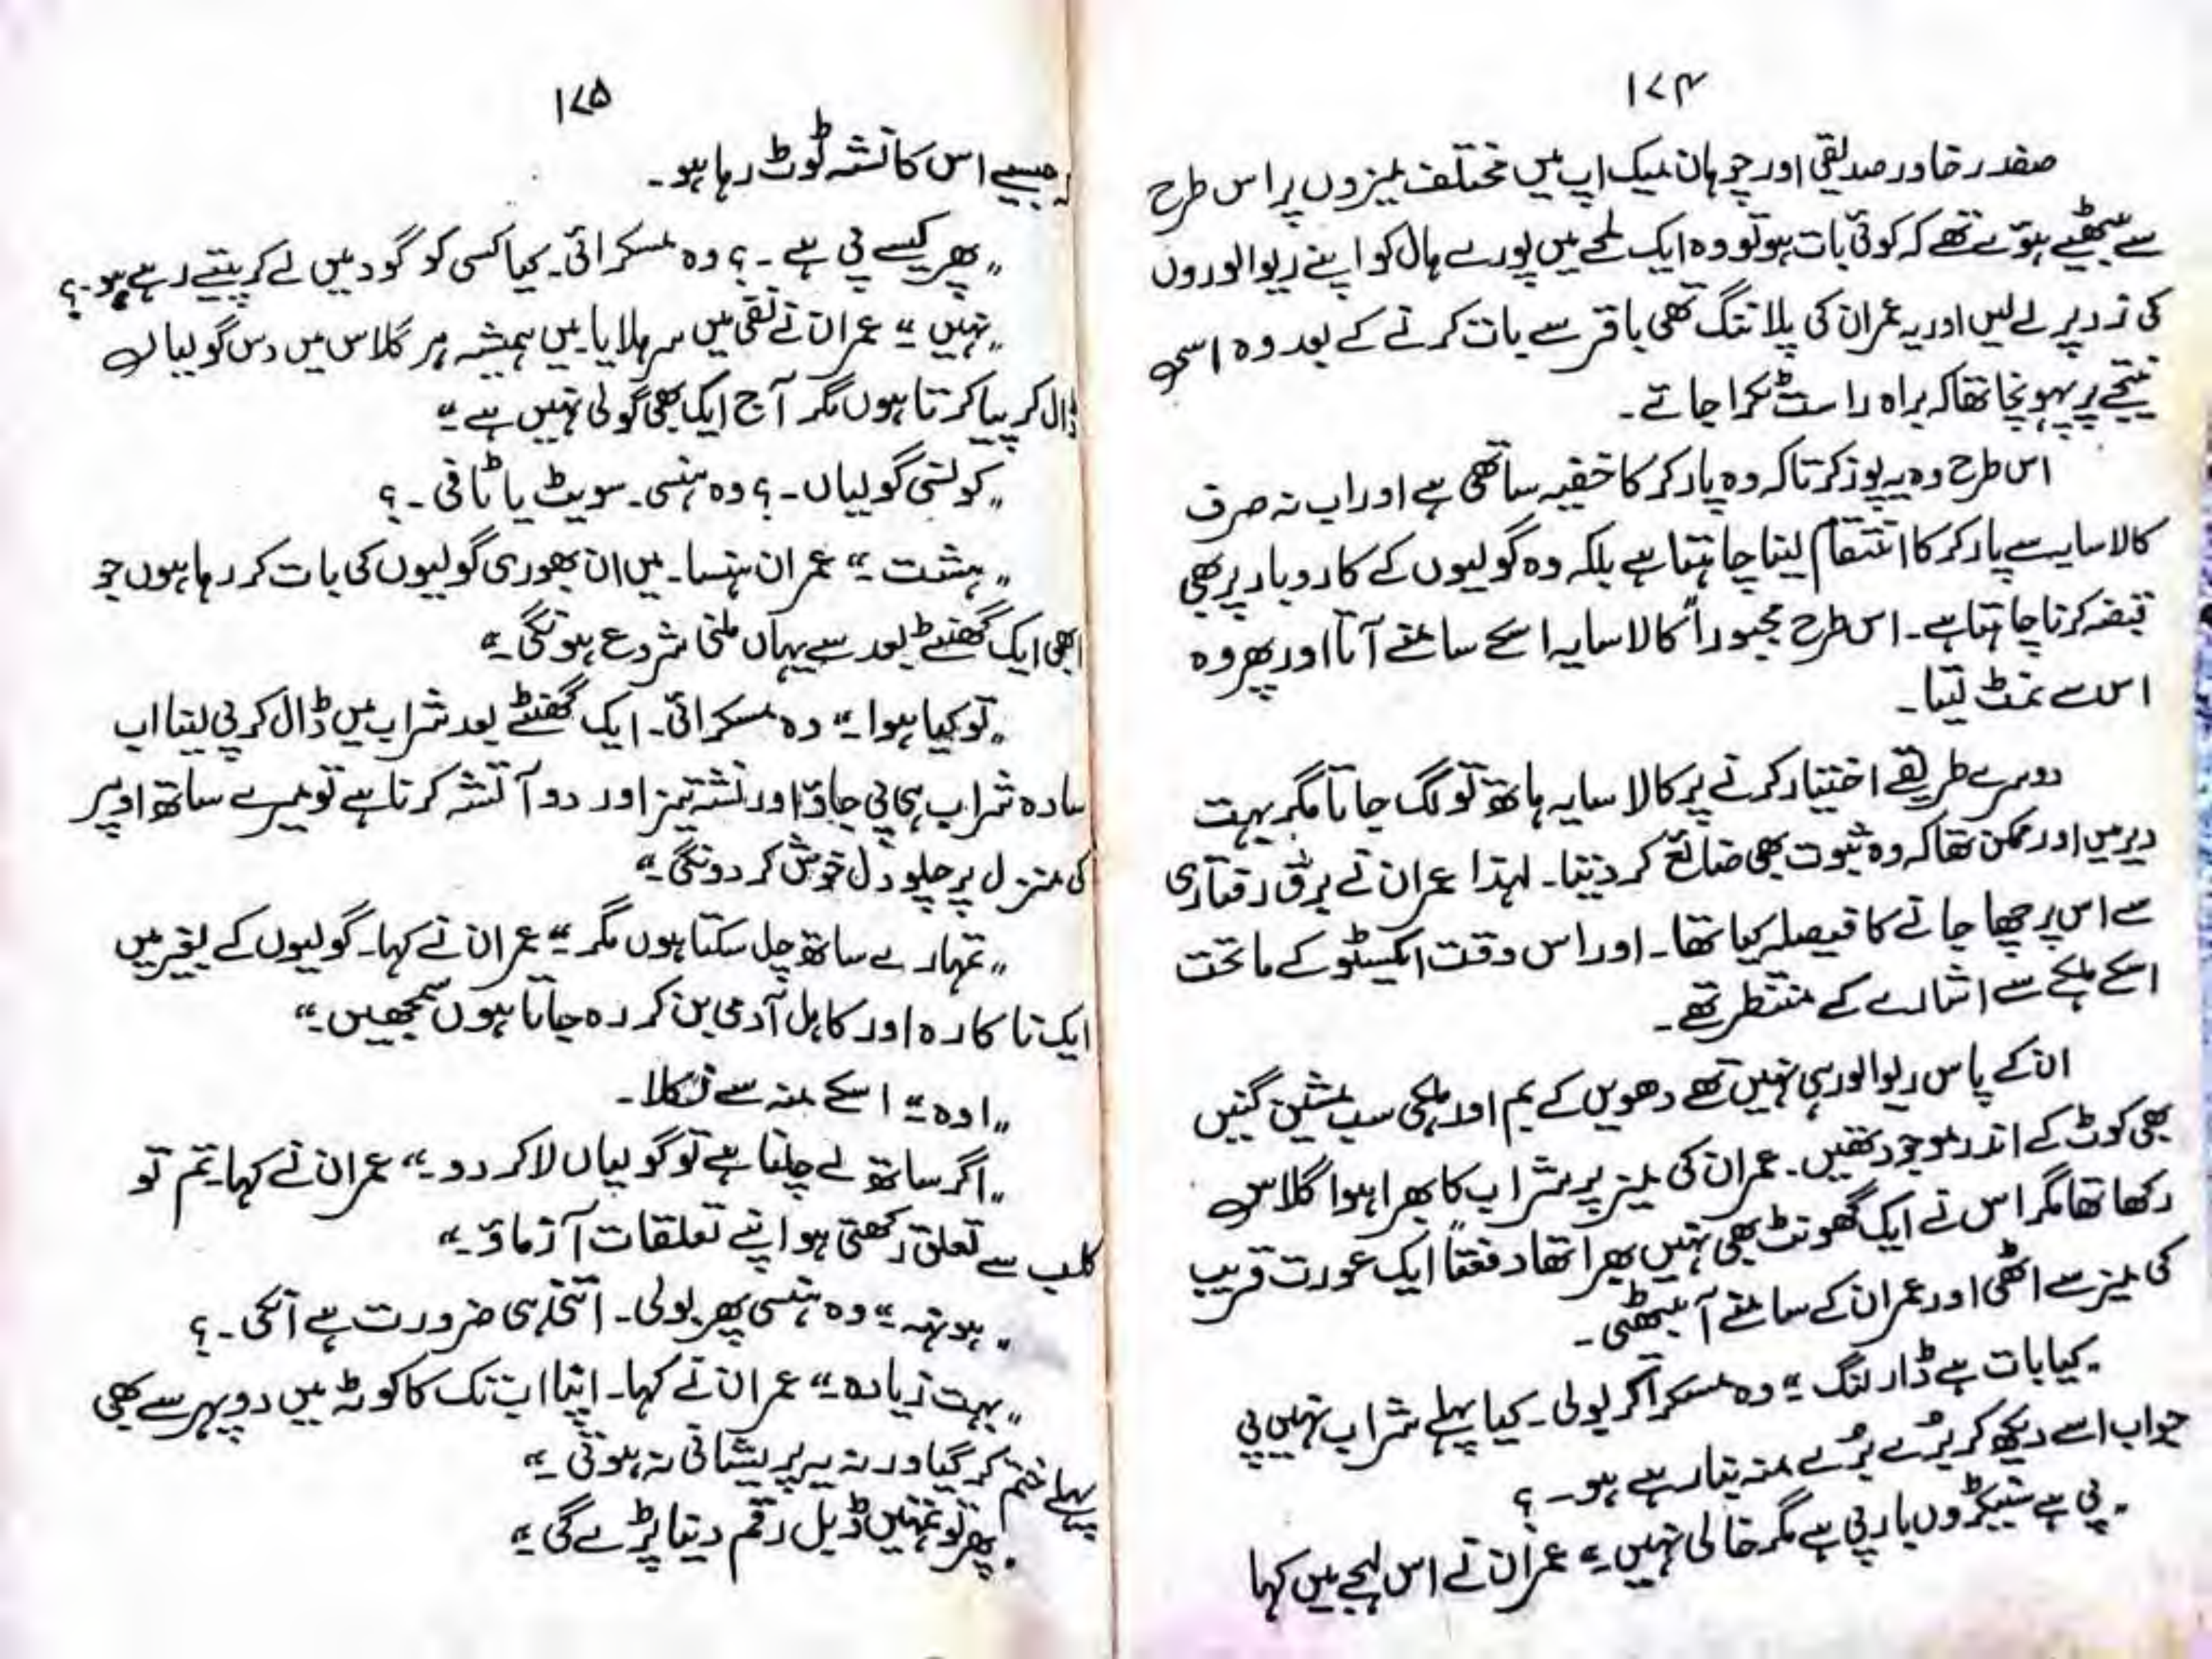 ۱۷۴
صفدر خاور صدیقی اور چوہان میک اپ میں مختلف میزوں پر اس طرح
سے بیٹھے ہوئے تھے کہ کوئی بات ہو تو وہ ایک لمحے میں پورے ہال کو اپنے ریوالوروں
کی زد پر لے لیں اور یہ عمران کی پلاننگ تھی باقر سے بات کرنے کے بعد وہ اسی
نتیجے پر پہونچا تھا کہ براہ راست ٹکرا جائے۔
اس طرح وہ یہ پوز کرتا کہ وہ پارکر کا خفیہ ساتھی ہے اور اب نہ صرف
کالا سایہ سے پارکر کا انتقام لینا چاہتا ہے بلکہ وہ گولیوں کے کاروبار پر بھی
قبضہ کرنا چاہتا ہے۔ اس طرح مجبوراً کالا سایہ اسکے سامنے آتا اور پھر وہ
اس سے نمٹ لیتا۔
دوسرے طریقے اختیار کرنے پر کالا سایہ ہاتھ تو لگ جاتا مگر بہت
دیر میں اور ممکن تھا کہ وہ ثبوت بھی ضائع کر دیتا۔ لہذا عمران نے برق رفتاری
سے اس پر چھا جانے کا فیصلہ کیا تھا۔ اور اس وقت ایکسٹو کے ماتحت
اسکے ہلکے سے اشارے کے منتظر تھے۔
ان کے پاس ریوالور ہی نہیں تھے دھویں کے بم اور ہلکی سب مشین گنیں
بھی کوٹ کے اندر موجود تھیں۔ عمران کی میز پر شراب کا بھرا ہوا گلاس
رکھا تھا مگر اس نے ایک گھونٹ بھی نہیں بھرا تھا دفعتاً ایک عورت قریب
کی میز سے اٹھی اور عمران کے سامنے آ بیٹھی۔
"کیا بات ہے ڈارلنگ" وہ مسکرا کر بولی۔ کیا پہلے شراب نہیں پی
جواب اسے دیکھ کر بُرے بُرے منہ بنا رہے ہو۔ ؟
"پی ہے سینکڑوں بار پی ہے مگر خالی نہیں۔" عمران نے اس لہجے میں کہا
۱۷۵
جیسے اس کا نشہ ٹوٹ رہا ہو۔
"پھر کیسے پی ہے ۔؟ وہ مسکرائی۔ کیا کسی کو گود میں لے کر پیتے رہے ہو۔؟
"نہیں" عمران نے نفی میں سر ہلایا میں ہمیشہ ہر گلاس میں دس گولیاں
ڈال کر پیا کرتا ہوں مگر آج ایک بھی گولی نہیں ہے"
"کونسی گولیاں ۔؟ وہ ہنسی۔ سویٹ یا ٹافی ۔؟
"ہشت۔" عمران ہنسا۔ میں ان بھوری گولیوں کی بات کر رہا ہوں جو
ابھی ایک گھنٹے بعد سے یہاں ملنی شروع ہونگی۔"
"تو کیا ہوا" وہ مسکرائی۔ ایک گھنٹے بعد شراب میں ڈال کر پی لینا اب
سادہ شراب ہی پی جاؤ اور نشہ تیز اور دو آتشہ کرنا ہے تو میرے ساتھ اوپر
کی منزل پر چلو دل خوش کر دونگی۔"
"تمہارے ساتھ چل سکتا ہوں مگر" عمران نے کہا۔ گولیوں کے بغیر میں
ایک ناکارہ اور کاہل آدمی بن کر رہ جاتا ہوں سمجھیں۔"
"اوہ" اسکے منہ سے نکلا۔
"اگر ساتھ لے چلنا ہے تو گولیاں لا کر دو۔" عمران نے کہا۔ تم تو
کلب سے تعلق رکھتی ہو اپنے تعلقات آزماؤ۔"
"ہونہہ" وہ ہنسی پھر بولی۔ اتنی ہی ضرورت ہے انکی۔؟
"بہت زیادہ۔" عمران نے کہا۔ اپنا اب تک کا کوٹہ میں دوپہر سے بھی
پہلے ختم کر گیا ورنہ یہ پریشانی نہ ہوتی۔"
"پھر تو تمہیں ڈبل رقم دینا پڑے گی۔"